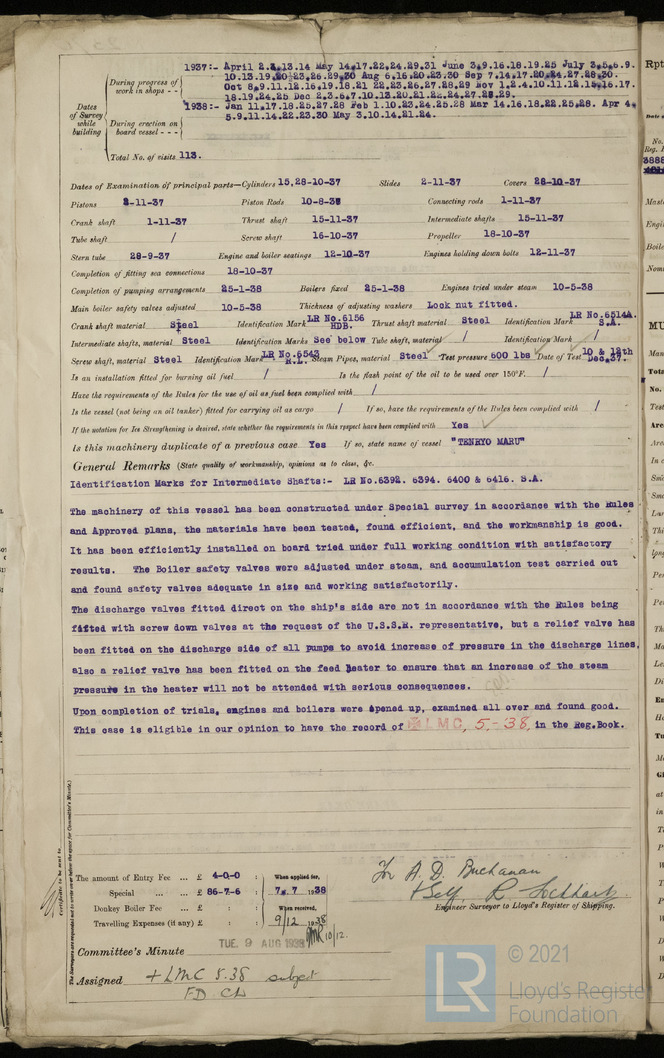 1937:- April 2.3.13.14 May 14.17.22.24.29.31 June 3.9.16.18.19.25 July 3.5.6.9.
During progress of work in shops - - 10.13.19.20.23.26.29.30 Aug 6.16.20.23.30 Sep 7.14.17.20.24.27.28.30.
Oct 8.9.11.12.16.19.18.21 22.23.26.27.28.29 Nov 1.2.4.10.11.12.15.16.17.
18.19.24.25 Dec 2.3.6.7.10.13.20.21.22.24.27.28.29.
Dates of Survey while building
1938:- Jan 11.17.18.25.27.28 Feb 1.10.23.24.25.28 Mar 14.16.18.22.25.28. Apr 4.
During erection on board vessel - - - 5.9.11.14.22.23.30 May 3.10.14.21.24.
Total No. of visits 113.
Dates of Examination of principal parts—Cylinders 15,28-10-37 Slides 2-11-37 Covers 28-10-37
Pistons 2-11-37 Piston Rods 10-8-37 Connecting rods 1-11-37
Crank shaft 1-11-37 Thrust shaft 15-11-37 Intermediate shafts 15-11-37
Tube shaft / Screw shaft 16-10-37 Propeller 18-10-37
Stern tube 28-9-37 Engine and boiler seatings 12-10-37 Engines holding down bolts 12-11-37
Completion of fitting sea connections 18-10-37
Completion of pumping arrangements 25-1-38 Boilers fixed 25-1-38 Engines tried under steam 10-5-38
Main boiler safety valves adjusted 10-5-38 Thickness of adjusting washers Lock nut fitted.
Crank shaft material Steel Identification Mark LR No.6156 HDB. Thrust shaft material Steel Identification Mark LR No.6514A. S.A.
Intermediate shafts, material Steel Identification Marks See below Tube shaft, material / Identification Mark /
Screw shaft, material Steel Identification Mark LR No.6543 H.L. Steam Pipes, material Steel Test pressure 600 lbs Date of Test 10 & 12th Dec.37.
Is an installation fitted for burning oil fuel / Is the flash point of the oil to be used over 150°F. /
Have the requirements of the Rules for the use of oil as fuel been complied with /
Is the vessel (not being an oil tanker) fitted for carrying oil as cargo / If so, have the requirements of the Rules been complied with /
If the notation for Ice Strengthening is desired, state whether the requirements in this respect have been complied with Yes
Is this machinery duplicate of a previous case Yes If so, state name of vessel "TENRYO MARU"
General Remarks (State quality of workmanship, opinions as to class, &c.
Identification Marks for Intermediate Shafts:- LR No.6392. 6394. 6400 & 6416. S.A.
The machinery of this vessel has been constructed under Special survey in accordance with the Rules
and Approved plans, the materials have been tested, found efficient, and the workmanship is good.
It has been efficiently installed on board tried under full working condition with satisfactory
results. The Boiler safety valves were adjusted under steam, and accumulation test carried out
and found safety valves adequate in size and working satisfactorily.
The discharge valves fitted direct on the ship's side are not in accordance with the Rules being
fitted with screw down valves at the request of the U.S.S.R. representative, but a relief valve has
been fitted on the discharge side of all pumps to avoid increase of pressure in the discharge lines,
also a relief valve has been fitted on the feed heater to ensure that an increase of the steam
pressure in the heater will not be attended with serious consequences.
Upon completion of trials, engines and boilers were opened up, examined all over and found good.
This case is eligible in our opinion to have the record of LMC, 5.-'38, in the Reg.Book.
The amount of Entry Fee ... £ 4-0-0 : When applied for,
Special ... ... £ 86-7-6 : 7. 7 1938
Donkey Boiler Fee ... £ : : When received,
Travelling Expenses (if any) £ : : 9/12 1938 10/12.
For A. D. Buchanan
+ Self R Lockhart
Engineer Surveyor to Lloyd's Register of Shipping.
Committee's Minute TUE. 9 AUG 1938
Assigned + LMC 5.38 subject
FD CL
© 2021
Lloyd's Register
Foundation